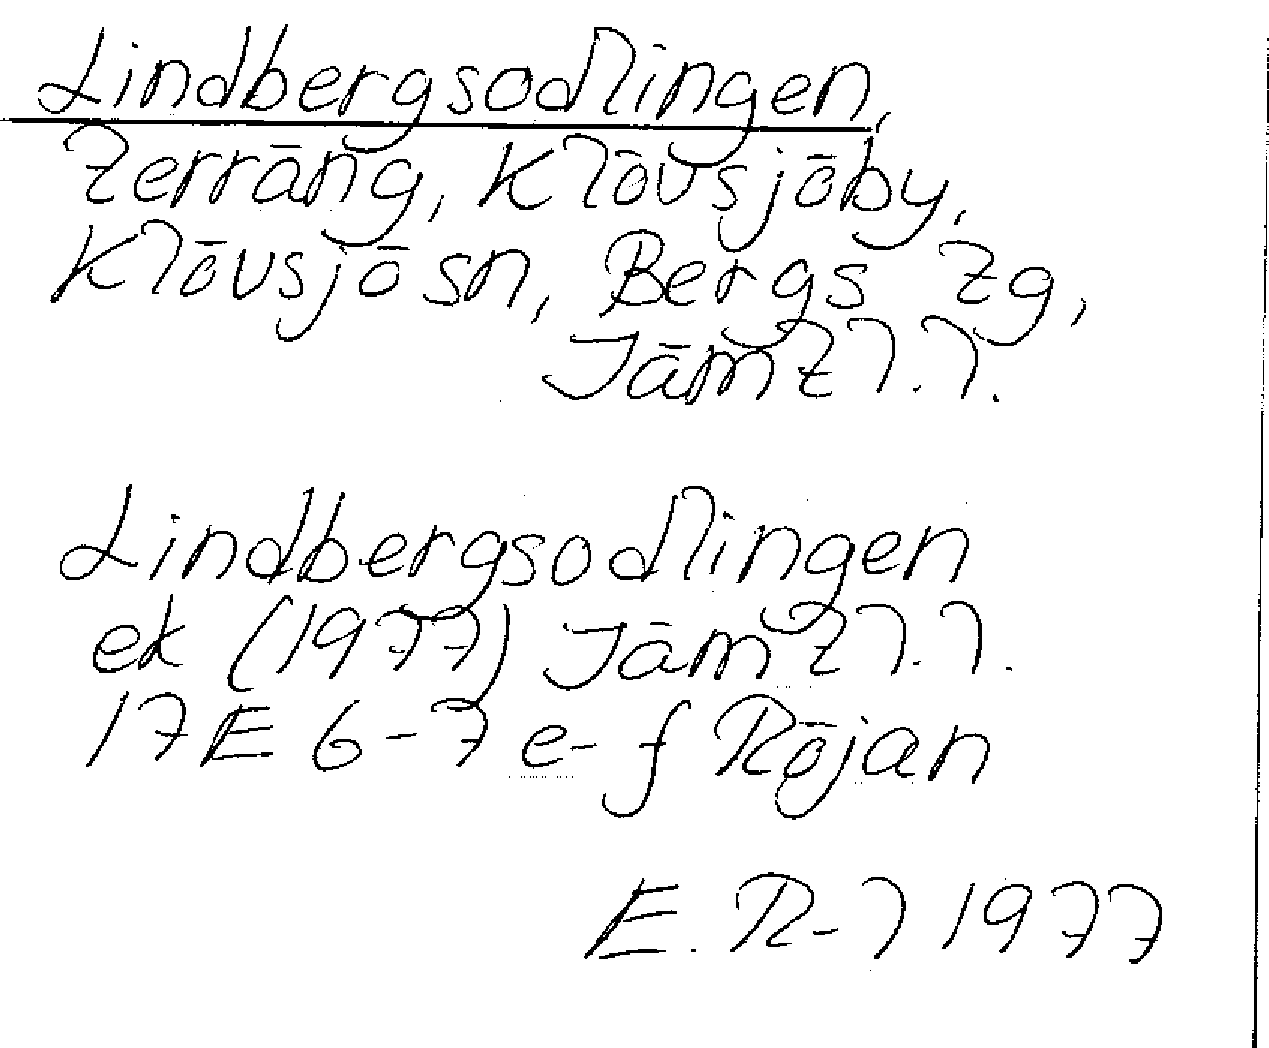 Lindbergsodlingen,
terräng, Klövsjöby,
Klövsjö sn, Bergs tg,
Jämtl.l.
Lindbergsodlingen
ek (1977) Jämtl.l.
17E 6-7 e-f Röjan
E. R-l 1977